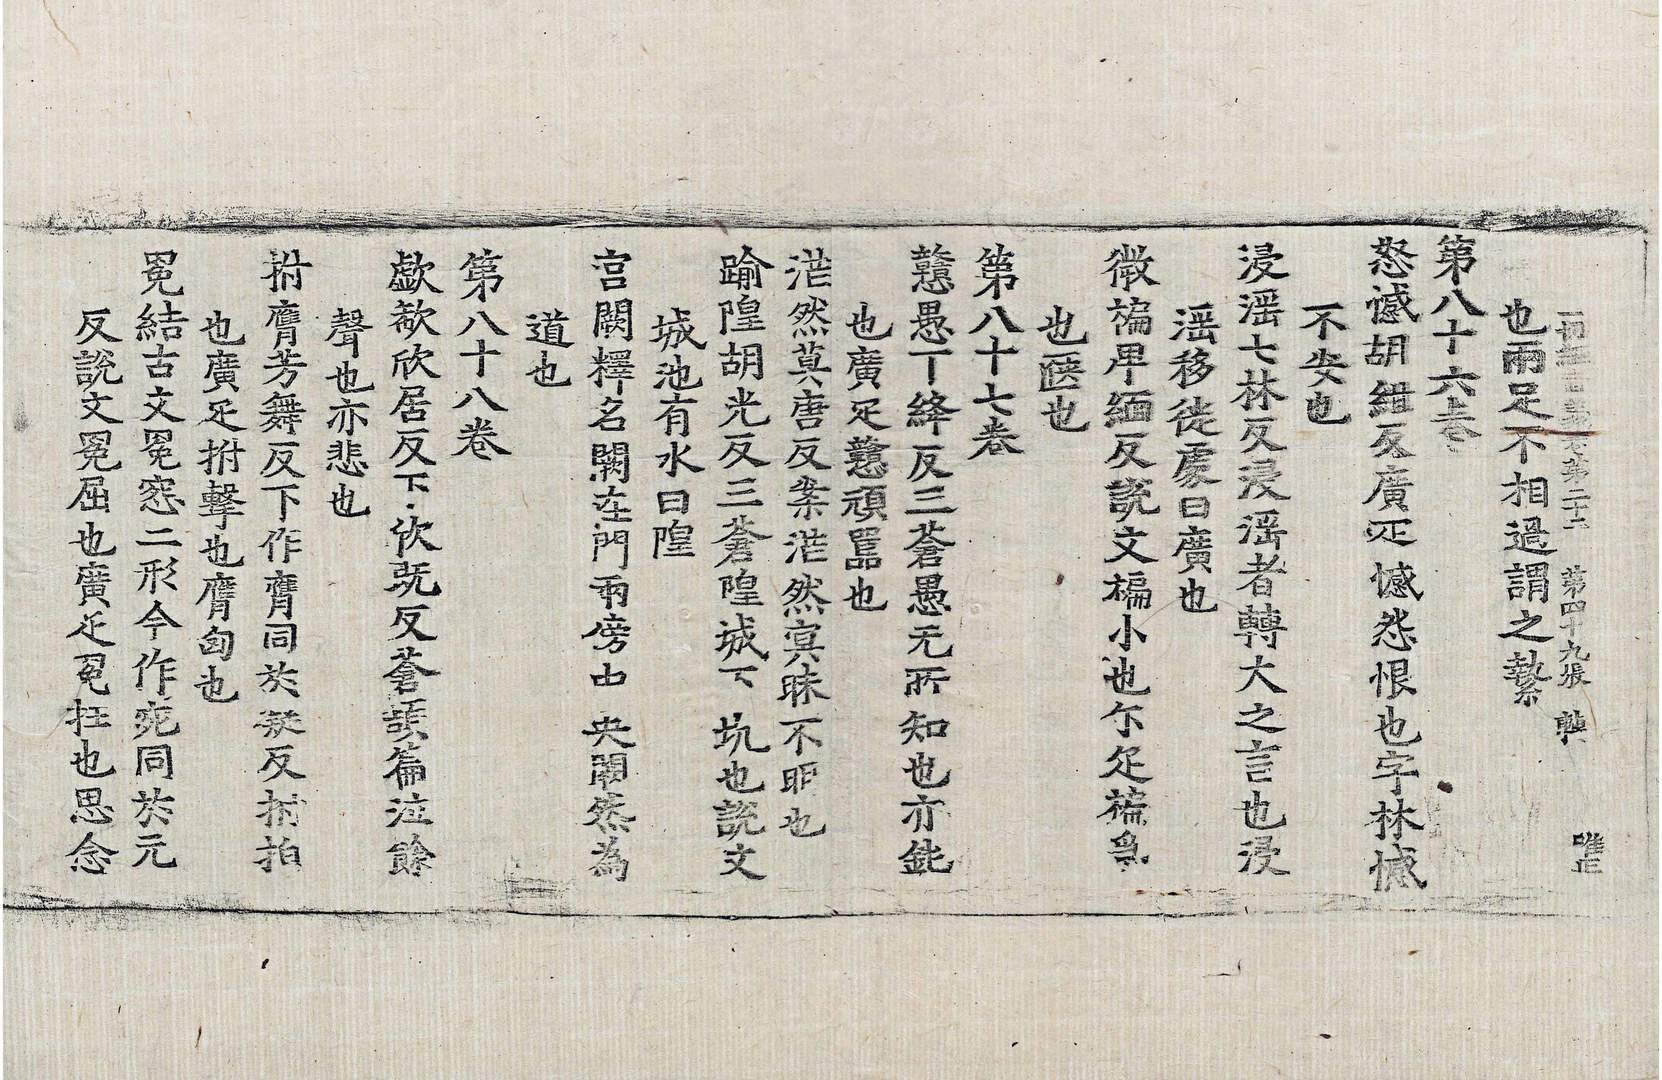 一切經音義卷第二十二 第四十九張 唯正
也兩足不相過謂之縶
第八十六卷
怒憾胡紺反廣疋憾怨恨也字林憾
不安也
浸滛七林反浸浸滛者轉大之言也浸
滛移徙處曰廣也
微褊卑緬反說文褊小也尓疋褊急
也陿也
第八十七卷
戇愚丁絳反三蒼愚无所知也亦鈍
也廣疋戇頑嚚也
茫然莫唐反案茫然寘昧不明也
踰隍胡光反三蒼隍城下坑也說文
城池有水曰隍
宫闕釋名闕在門兩旁中央闕然為
道也
第八十八卷
歔欷欣居反下欣旣反蒼頡篇泣餘
聲也亦悲也
拊膺芳舞反下作膺同於凝反拊拍
也廣疋拊擊也膺匈也
冤結古文冤窓二形今作宛同於元
反說文冤屈也廣疋冤枉也思念